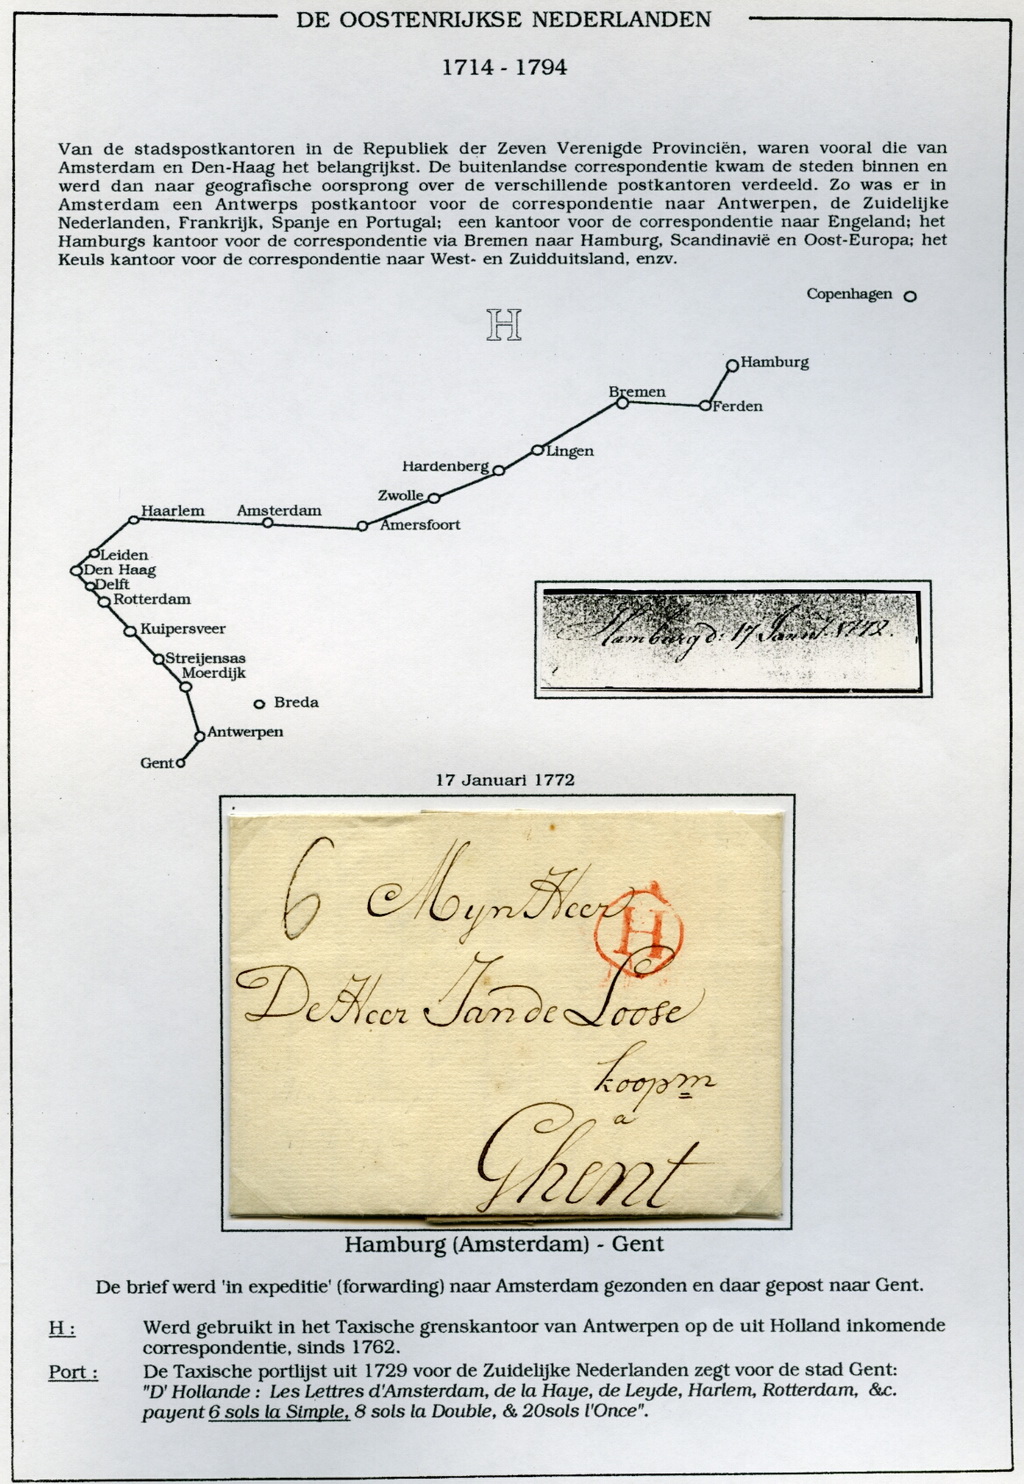 DE OOSTENRIJKSE NEDERLANDEN
1714 - 1794
Van de stadspostkantoren in de Republiek der Zeven Verenigde Provinciën, waren vooral die van
Amsterdam en Den-Haag het belangrijkst. De buitenlandse correspondentie kwam de steden binnen en
werd dan naar geografische oorsprong over de verschillende postkantoren verdeeld. Zo was er in
Amsterdam een Antwerps postkantoor voor de correspondentie naar Antwerpen, de Zuidelijke
Nederlanden, Frankrijk, Spanje en Portugal; een kantoor voor de correspondentie naar Engeland; het
Hamburgs kantoor voor de correspondentie via Bremen naar Hamburg, Scandinavië en Oost-Europa; het
Keuls kantoor voor de correspondentie naar West- en Zuidduitsland, enzv.
Copenhagen
H
Hamburg
Bremen
Ferden
Lingen
Hardenberg
Zwolle
Haarlem Amsterdam
Amersfoort
Leiden
Den Haag
Delft
Rotterdam
Kuipersveer
Streijensas
Moerdijk
Breda
Antwerpen
Gent
Hamburg d: 17 Janry. 1772.
17 Januari 1772
6 Mijn Heer
H
De Heer Jan de Loose
koopm
a
Ghent
Hamburg (Amsterdam) - Gent
De brief werd 'in expeditie' (forwarding) naar Amsterdam gezonden en daar gepost naar Gent.
H : Werd gebruikt in het Taxische grenskantoor van Antwerpen op de uit Holland inkomende
correspondentie, sinds 1762.
Port : De Taxische portlijst uit 1729 voor de Zuidelijke Nederlanden zegt voor de stad Gent:
"D' Hollande : Les Lettres d'Amsterdam, de la Haye, de Leyde, Harlem, Rotterdam, &c.
payent 6 sols la Simple, 8 sols la Double, & 20sols l'Once".